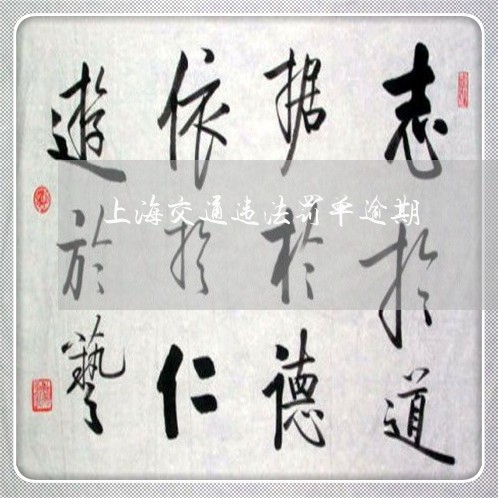 志於道
据於德
依於仁
遊於藝
上海交通违法罚单逾期